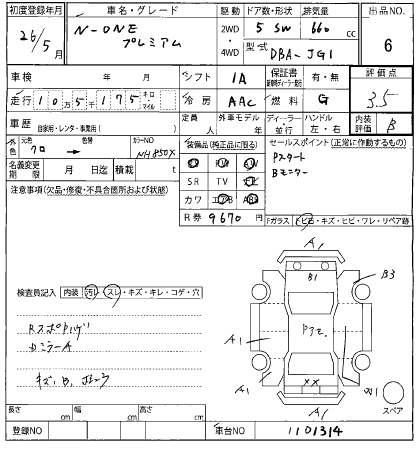 初度登録年月 車名・グレード 駆動 ドア数・形状 排気量 出品NO.
26/5月 N-ONE プレミアム 2WD・4WD 5 SW 660 cc 6
型式 DBA-JG1
車検 年 月 シフト IA 保証書 有・無 評価点
走行 10万5千175 キロ マイル 冷房 AAC 燃料 G 3.5
車歴 自家用・レンタ・事業用( ) 定員 人 外車モデル 年 ディーラー 並行 ハンドル 左・右 内装評価 B
外色 元色 クロ → 色替 カラーNO NH850X 装備品(純正品に限る) セールスポイント(正常に作動するもの)
Pスタート
Bモニター
名義変更期限 月 日迄 積載 t SR TV
注意事項(欠品・修復・不具合箇所および状態) カワ
R券 9670 円 Fガラス トビ石・キズ・ヒビ・ワレ・リペア跡
A1 B1 B3
検査員記入 内装 汚レ・スレ・キズ・キレ・コゲ・穴
RスポPハゲ
A1 Pガモ.
DミラーA
キズ、B、Jシーフ
A1 XX A1 W1
A1 スペア
長さ cm 幅 cm 高さ cm
登録NO 車台NO 1101314